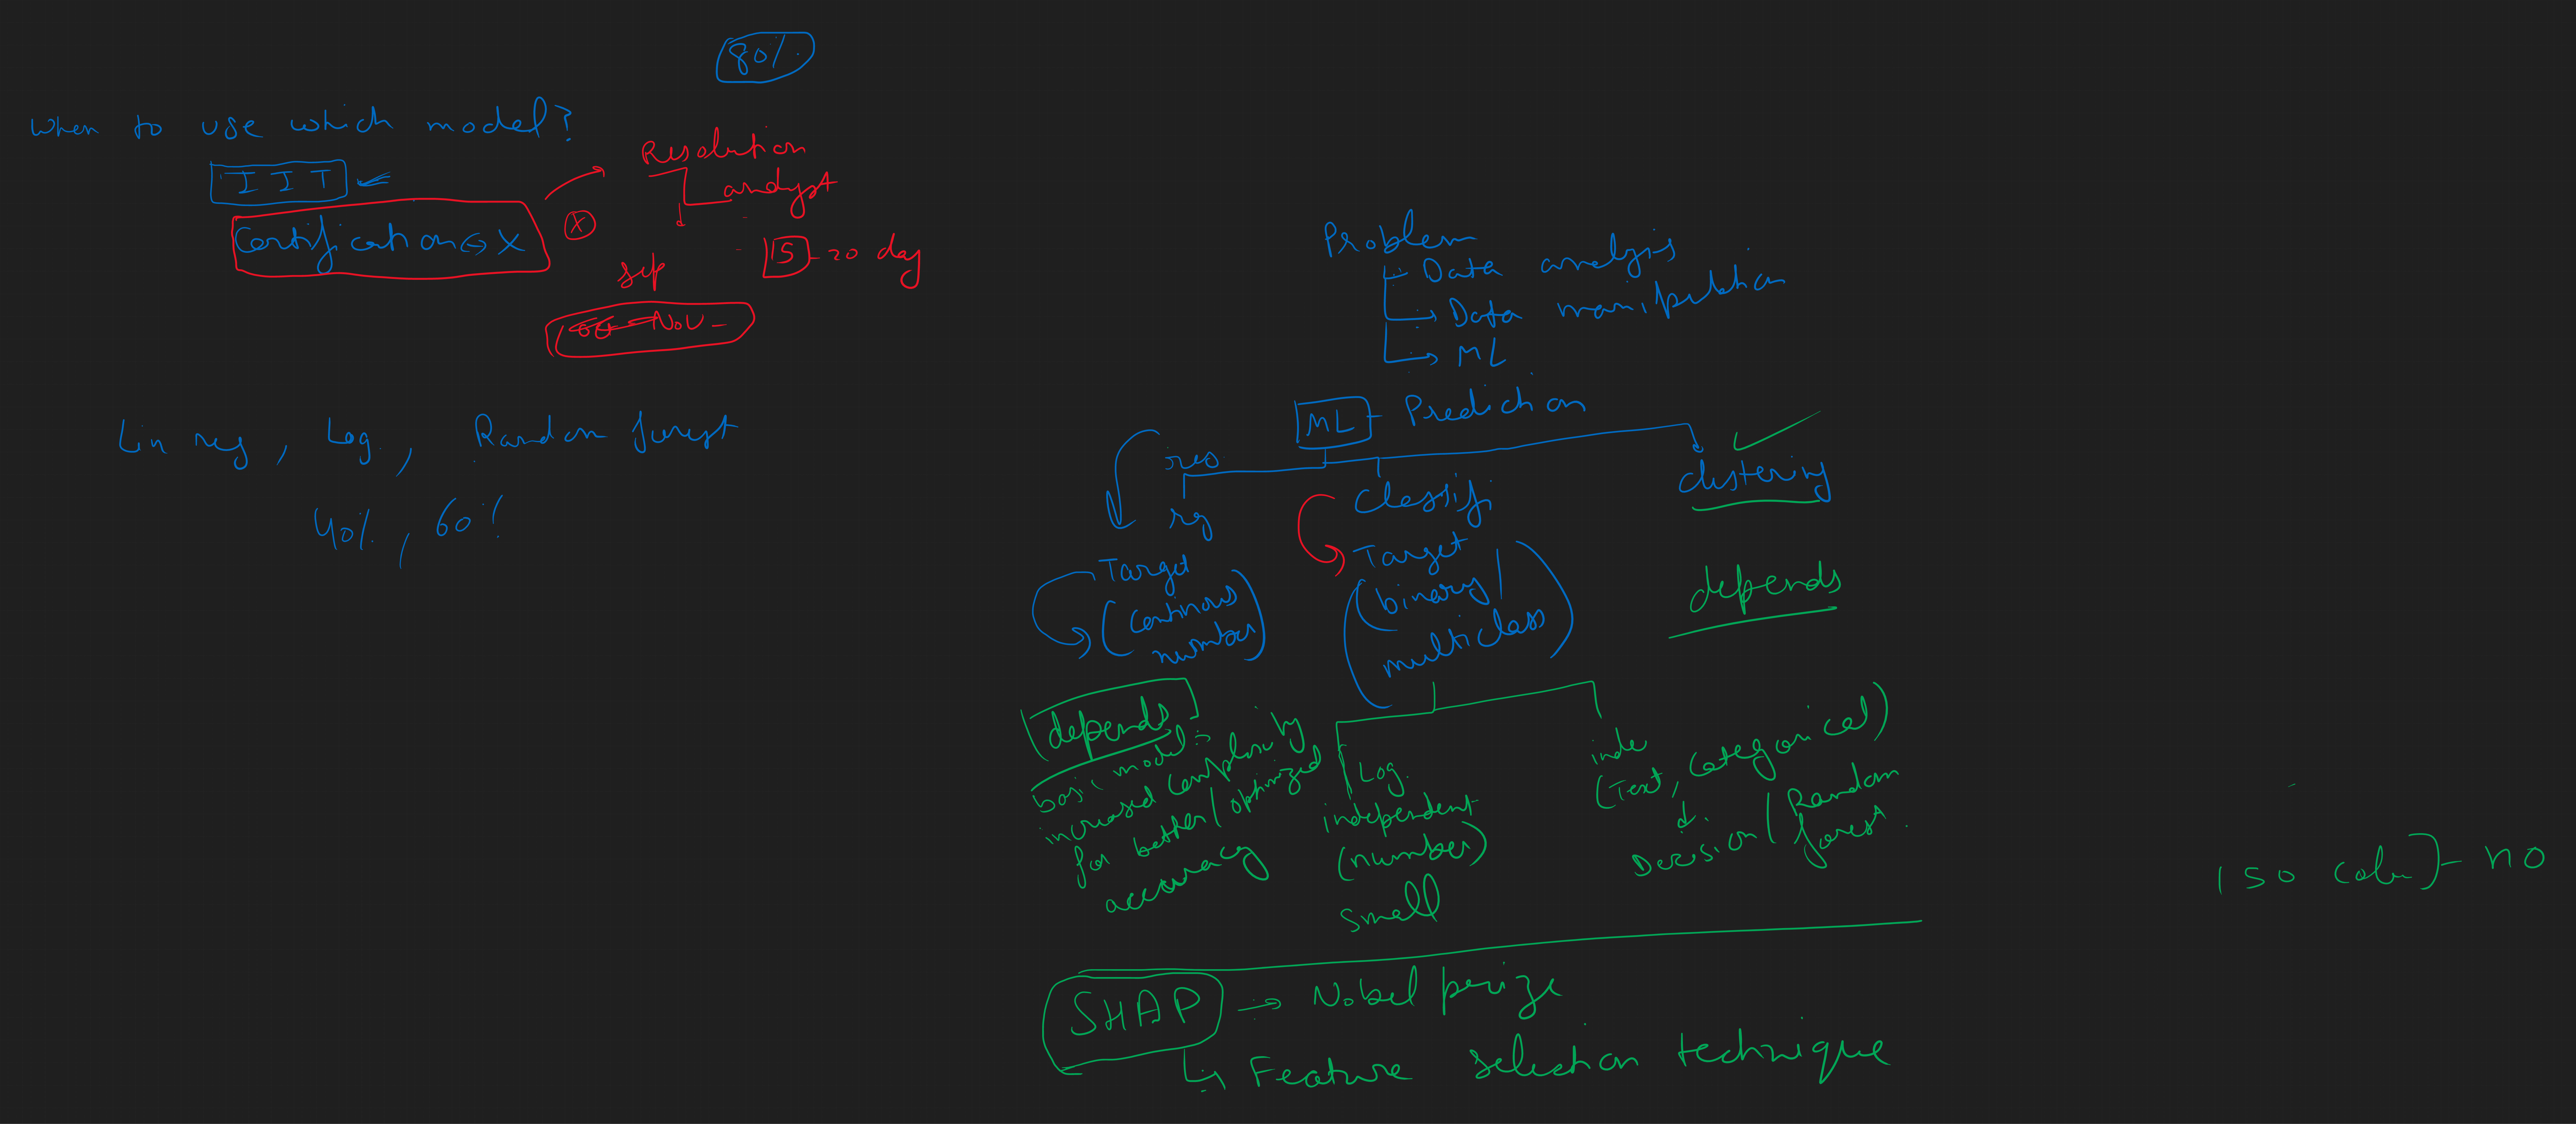 80%
when to use which model?
IIT
Certification X
X
Resolution
analyst
15-20 day
Nov
Lin reg, Log, Random forest
40%, 60%
Problem
Data analysis
Data manipulation
ML
ML - Prediction
reg
Classifi
clustering
Target
(continous
number)
Target
(binary/
multiclass)
depends
depends
basic model
increased complexity
for better/optimized
accuracy
Log.
independent
(number)
small
inde
(Text, categorical)
Decision/Random
forest.
150 column - no
SHAP → Nobel prize
Feature selection technique